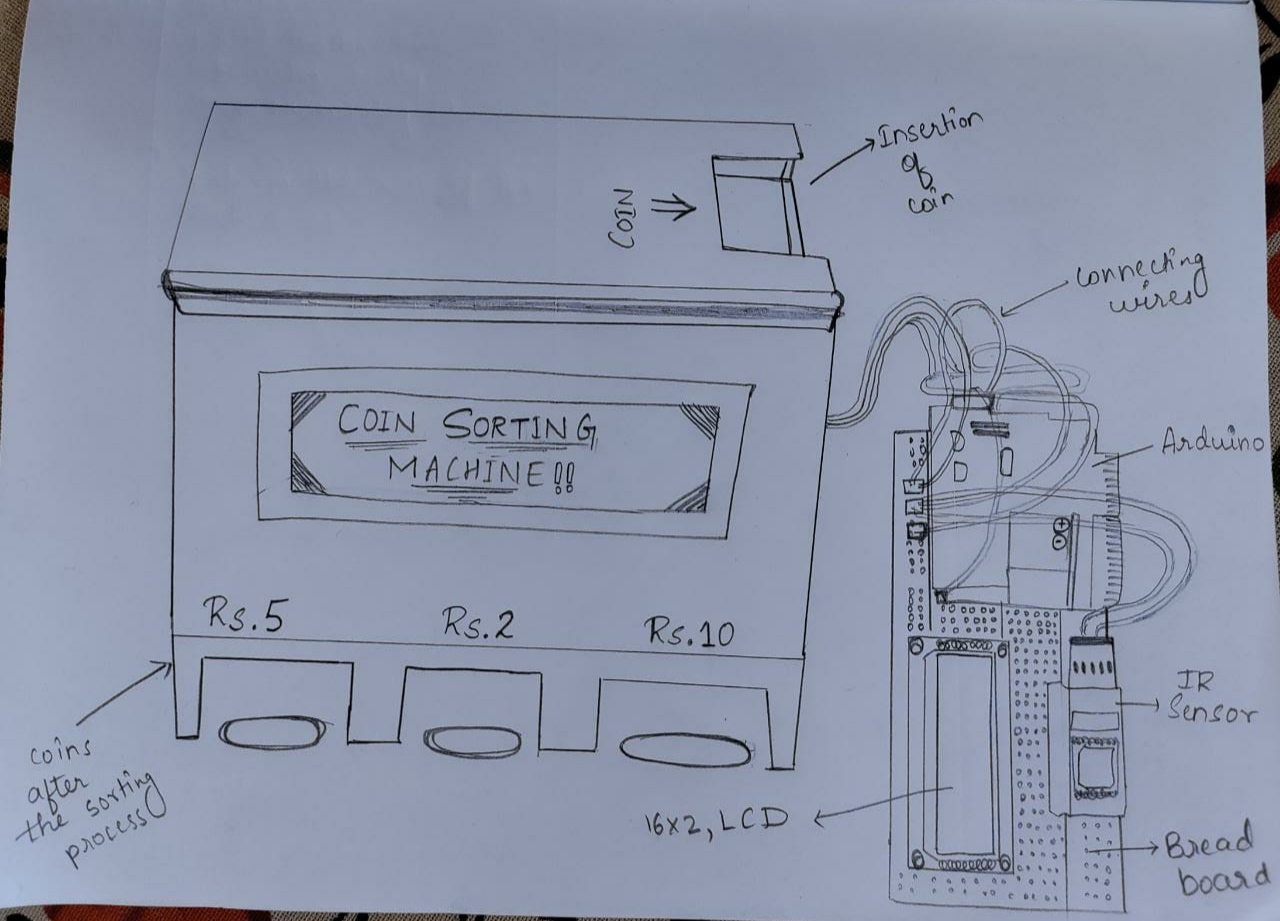 Insertion
of
coin
COIN
Connecting
wires
Arduino
COIN SORTING
MACHINE!!
Rs.5
Rs.2
Rs.10
IR
Sensor
coins
after
the sorting
process
16x2, LCD
Bread
board